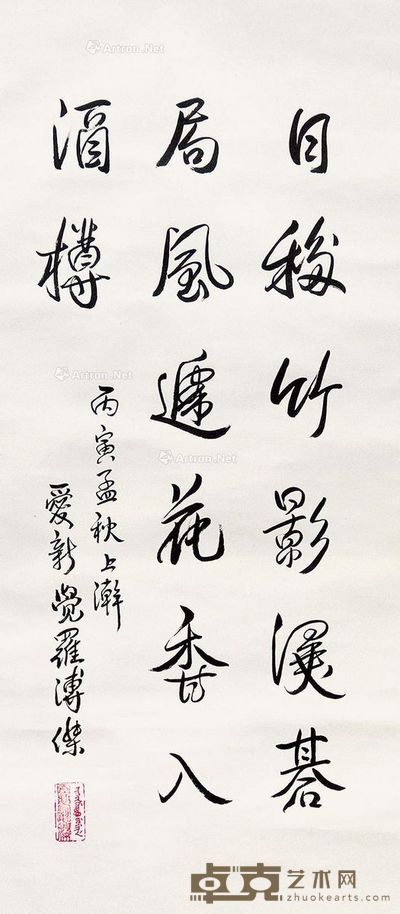 日移竹影侵碁
局風遞花香入
酒樽
丙寅孟秋上澣
愛新覺羅溥傑
Artron.Net
Artron.Net
Artron.Net
卓克艺术网
zhuokearts.com